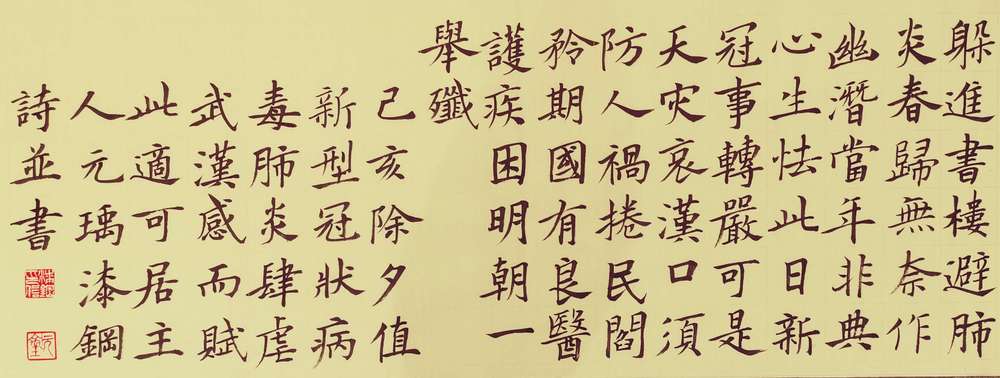 躲進書樓避肺
炎春歸無奈作
幽潛當年非典
心生怯此日新
冠事轉嚴可是
天灾哀漢口須
防人禍捲民閻
矜期國有良醫
護疾困明朝一
舉殲
己亥除夕值
新型冠狀病
毒肺炎肆虐
武漢感而賦
此適可居主
人元瑀漆鋼
詩並書